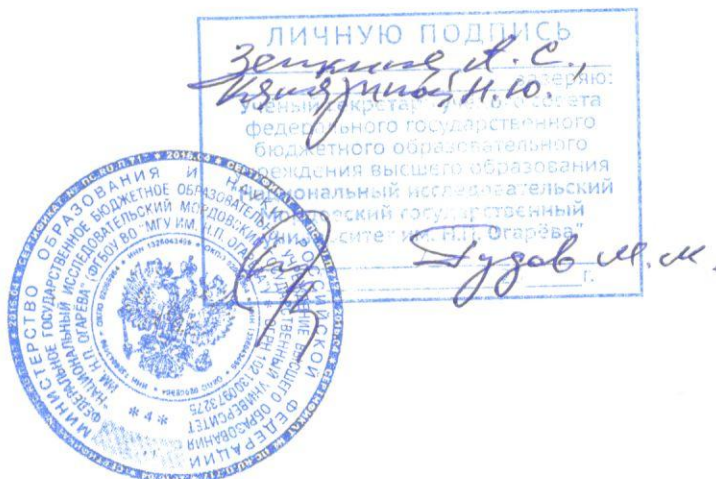 ЛИЧНУЮ ПОДПИСЬ
А. С.,
Н. Ю.
заверяю:
Ученый секретарь ученого совета
федерального государственного
бюджетного образовательного
учреждения высшего образования
"Национальный исследовательский
Мордовский государственный
университет им. Н.П. Огарёва"
Гудов М. М.
г.
МИНИСТЕРСТВО ОБРАЗОВАНИЯ И НАУКИ РОССИЙСКОЙ ФЕДЕРАЦИИ
ФЕДЕРАЛЬНОЕ ГОСУДАРСТВЕННОЕ БЮДЖЕТНОЕ ОБРАЗОВАТЕЛЬНОЕ УЧРЕЖДЕНИЕ ВЫСШЕГО ОБРАЗОВАНИЯ
"НАЦИОНАЛЬНЫЙ ИССЛЕДОВАТЕЛЬСКИЙ МОРДОВСКИЙ ГОСУДАРСТВЕННЫЙ УНИВЕРСИТЕТ
ИМ. Н.П. ОГАРЁВА" (ФГБОУ ВО "МГУ ИМ. Н.П. ОГАРЁВА") ОГРН 1021300973275
* 4 *